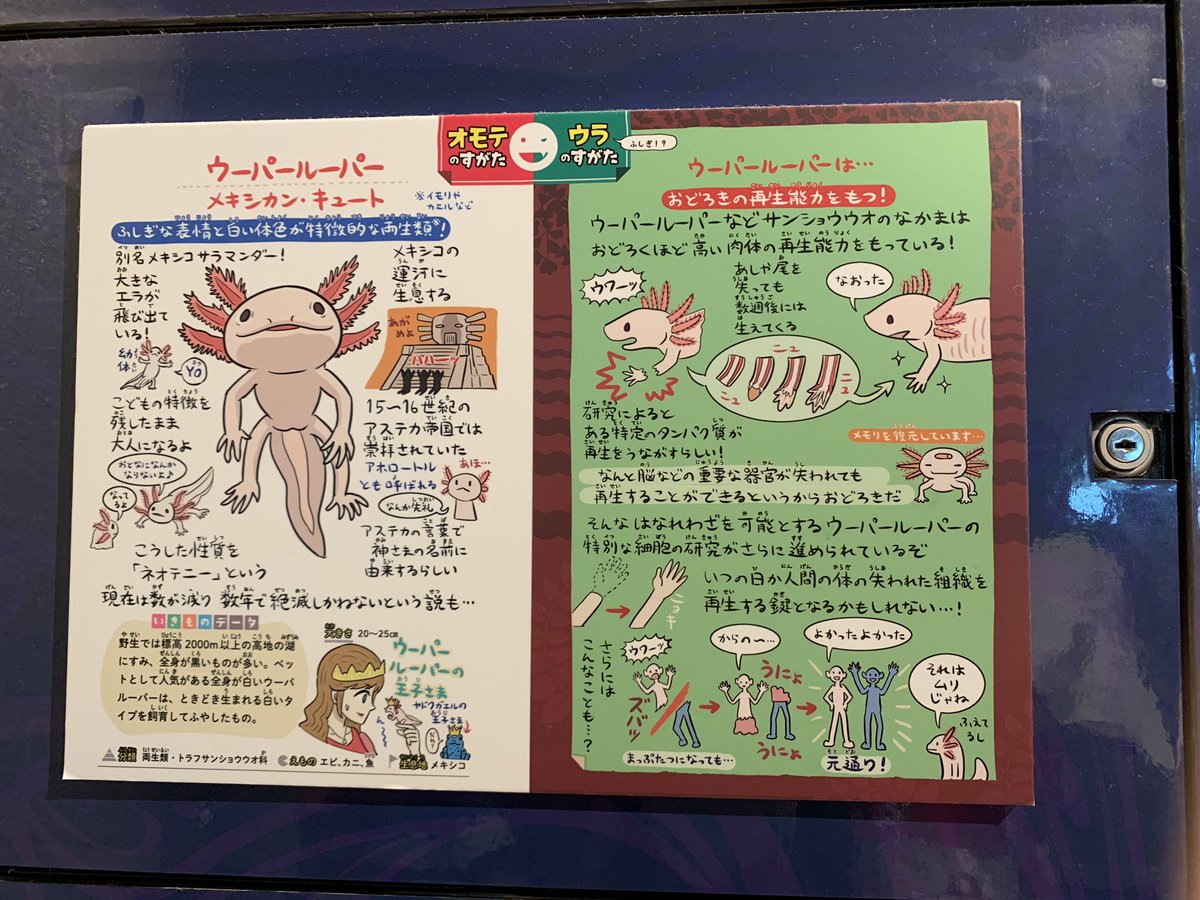 オモテ
のすがた
ウラ
のすがた
ふしぎ!?
ウーパールーパー
メキシカン・キュート
※イモリや
カエルなど
ふしぎな表情と白い体色が特徴的な両生類※!
別名メキシコサラマンダー!
大きな
エラが
飛び出て
いる!
幼体
YO
こどもの特徴を
残したまま
大人になるよ
おとなになんか
ならないよ♪
なってるよ
こうした性質を
「ネオテニー」という
メキシコの
運河に
生息する
あがめよ
ババーッ
15〜16世紀の
アステカ帝国では
崇拝されていた
アホロートル
とも呼ばれる
あほ…
なんか失礼
アステカの言葉で
神さまの名前に
由来するらしい
現在は数が減り 数年で絶滅しかねないという説も…
いきものデータ
野生では標高2000m以上の高地の湖
にすみ、全身が黒いものが多い。ペッ
トとして人気がある全身が白いウーパ
ールーパーは、ときどき生まれる白いタ
イプを飼育してふやしたもの。
大きさ 20〜25cm
ウーパー
ルーパーの
王子さま
ヤドクガエルの
王子さま
分類 両生類・トラフサンショウウオ科
えもの エビ、カニ、魚
生息地 メキシコ
ウーパールーパーは…
おどろきの再生能力をもつ!
ウーパールーパーなどサンショウウオのなかまは
おどろくほど高い肉体の再生能力をもっている!
ウワーッ
あしや尾を
失っても
数週後には
生えてくる
なおった
ニュ
ニュ
ニュ
研究によると
ある特定のタンパク質が
再生をうながすらしい!
メモリを復元しています…
なんと脳などの重要な器官が失われても
再生することができるというからおどろきだ
そんなはなれわざを可能とするウーパールーパーの
特別な細胞の研究がさらに進められているぞ
ニョキ
いつの日か人間の体の失われた組織を
再生する鍵となるかもしれない…!
さらには
こんなことも…?
ウワーッ
ズバッ
まっぷたつになっても…
からの〜…
うにょ
うにょ
よかったよかった
元通り!
それは
ムリ
じゃね
ふえてるし